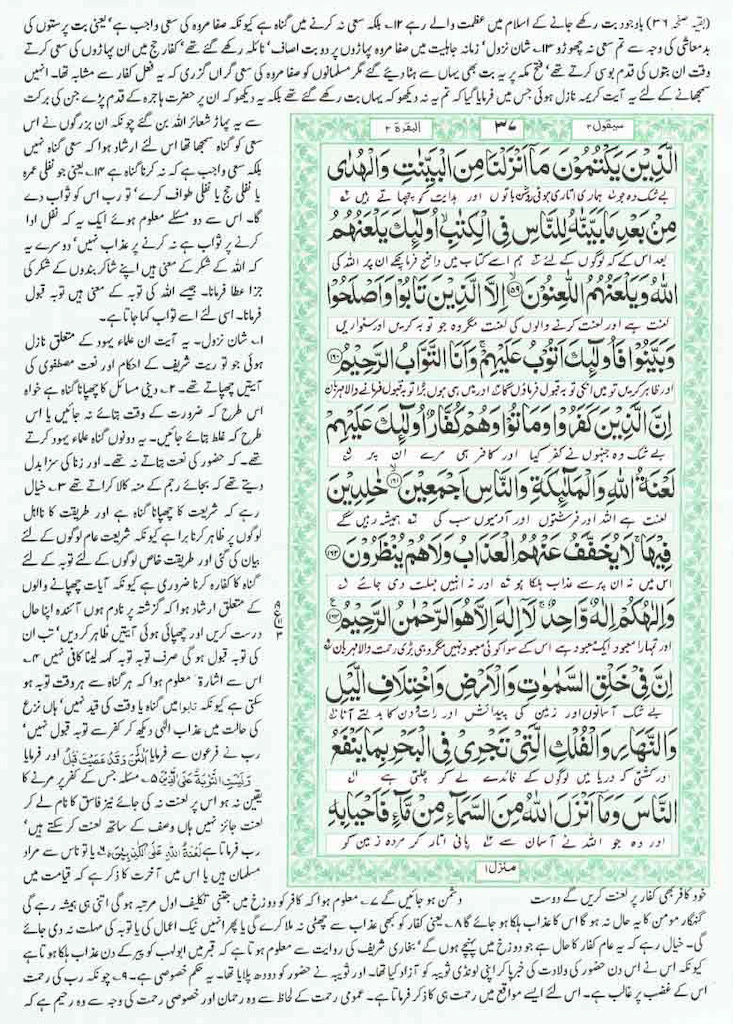 (بقیہ صفحہ ۳۶) باوجود بت رکھے جانے کے اسلام میں عظمت والے رہے ۱۲۔ بلکہ سعی نہ کرنے میں گناہ ہے کیونکہ صفا مروہ کی سعی واجب ہے' یعنی بت پرستوں کی
بدمعاشی کی وجہ سے تم سعی نہ چھوڑو ۱۳۔ شان نزول' زمانہ جاہلیت میں صفا مروہ پہاڑوں پر دو بت اصاف' نائلہ رکھے گئے تھے' کفار حج میں ان پہاڑوں کی سعی کرتے
وقت ان بتوں کی قدم بوسی کرتے تھے' فتح مکہ پر یہ بت بھی یہاں سے ہٹا دیئے گئے مگر مسلمانوں کو صفا مروہ کی سعی گراں گزری کہ یہ فعل کفار سے مشابہ تھا۔ انہیں
سمجھانے کے لئے یہ آیت کریمہ نازل ہوئی جس میں فرمایا گیا کہ تم یہ نہ دیکھو کہ یہاں بت رکھے گئے تھے بلکہ یہ دیکھو کہ ان پر حضرت ہاجرہ کے قدم پڑے جن کی برکت
سیقول ۲
۳۷
البقرة ۲
الَّذِیْنَ یَكْتُمُوْنَ مَاۤ اَنْزَلْنَا مِنَ الْبَیِّنٰتِ وَ الْهُدٰى
بے شک وہ جو ہماری اتاری ہوئی روشن باتوں اور ہدایت کو چھپاتے ہیں
مِنْۢ بَعْدِ مَا بَیَّنّٰهُ لِلنَّاسِ فِی الْكِتٰبِ اُولٰٓىِٕكَ یَلْعَنُهُمُ
بعد اس کے کہ لوگوں کے لئے ہم اسے کتاب میں واضح فرما چکے ان پر اللہ کی
اللّٰهُ وَ یَلْعَنُهُمُ اللّٰعِنُوْنَ ۱۵۹ اِلَّا الَّذِیْنَ تَابُوْا وَ اَصْلَحُوْا
لعنت ہے اور لعنت کرنے والوں کی لعنت مگر وہ جو توبہ کریں اور سنواریں
وَ بَیَّنُوْا فَاُولٰٓىِٕكَ اَتُوْبُ عَلَیْهِمْ وَ اَنَا التَّوَّابُ الرَّحِیْمُ ۱۶۰
اور ظاہر کریں تو میں انکی توبہ قبول فرماؤں گا اور میں ہی ہوں بڑا توبہ قبول فرمانے والا مہربان
اِنَّ الَّذِیْنَ كَفَرُوْا وَ مَاتُوْا وَ هُمْ كُفَّارٌ اُولٰٓىِٕكَ عَلَیْهِمْ
بے شک وہ جنہوں نے کفر کیا اور کافر ہی مرے ان پر
لَعْنَةُ اللّٰهِ وَ الْمَلٰٓىِٕكَةِ وَ النَّاسِ اَجْمَعِیْنَ ۱۶۱ خٰلِدِیْنَ
لعنت ہے اللہ اور فرشتوں اور آدمیوں سب کی ہمیشہ رہیں گے
فِیْهَا لَا یُخَفَّفُ عَنْهُمُ الْعَذَابُ وَ لَا هُمْ یُنْظَرُوْنَ ۱۶۲
اس میں نہ ان پر سے عذاب ہلکا ہو اور نہ انہیں مہلت دی جائے
وَ اِلٰهُكُمْ اِلٰهٌ وَّاحِدٌ لَاۤ اِلٰهَ اِلَّا هُوَ الرَّحْمٰنُ الرَّحِیْمُ ۱۶۳
اور تمہارا معبود ایک معبود ہے اس کے سوا کوئی معبود نہیں مگر وہی بڑی رحمت والا مہربان
اِنَّ فِیْ خَلْقِ السَّمٰوٰتِ وَ الْاَرْضِ وَ اخْتِلَافِ الَّیْلِ
بے شک آسمانوں اور زمین کی پیدائش اور رات و دن کا بدلتے آنا
وَ النَّهَارِ وَ الْفُلْكِ الَّتِیْ تَجْرِیْ فِی الْبَحْرِ بِمَا یَنْفَعُ
اور کشتی کہ دریا میں لوگوں کے فائدے لے کر چلتی ہے
النَّاسَ وَ مَاۤ اَنْزَلَ اللّٰهُ مِنَ السَّمَآءِ مِنْ مَّآءٍ فَاَحْیَا بِهِ
اور وہ جو اللہ نے آسمان سے پانی اتار کر مردہ زمین کو
منزل ۱
سے یہ پہاڑ شعائر اللہ بن گئے چونکہ ان بزرگوں نے اس
سعی کو گناہ سمجھا تھا اس لئے ارشاد ہوا کہ سعی گناہ نہیں
بلکہ سعی واجب ہے کہ نہ کرنا گناہ ہے ۱۴۔ یعنی جو نفلی عمرہ
یا نفلی حج یا نفلی طواف کرے' تو رب اس کو ثواب دے
گا۔ اس سے دو مسئلے معلوم ہوئے ایک یہ کہ نفل ادا
کرنے پر ثواب ہے نہ کرنے پر عذاب نہیں' دوسرے یہ
کہ اللہ کے شکر کے معنی ہیں اپنے شاکر بندوں کے شکر کی
جزا عطا فرمانا۔ جیسے اللہ کی توبہ کے معنی ہیں توبہ قبول
فرمانا۔ اسی لئے اسے تواب کہا جاتا ہے۔
۱۔ شان نزول۔ یہ آیت ان علماء یہود کے متعلق نازل
ہوئی جو توریت شریف کے احکام اور نعت مصطفوی کی
آیتیں چھپاتے تھے۔ ۲۔ دینی مسائل کا چھپانا گناہ ہے خواہ
اس طرح کہ ضرورت کے وقت بتائے نہ جائیں یا اس
طرح کہ غلط بتائے جائیں۔ یہ دونوں گناہ علماء یہود کرتے
تھے۔ کہ حضور کی نعت بتاتے نہ تھے۔ اور زنا کی سزا بدل
دیتے تھے کہ بجائے رجم کے منہ کالا کراتے تھے ۳۔ خیال
رہے کہ شریعت کا چھپانا گناہ ہے اور طریقت کا نااہل
لوگوں پر ظاہر کرنا برا ہے کیونکہ شریعت عام لوگوں کے لئے
بیان کی گئی اور طریقت خاص لوگوں کے لئے توبہ کے لئے
گناہ کا کفارہ کرنا ضروری ہے کیونکہ آیات چھپانے والوں
کے متعلق ارشاد ہوا کہ گزشتہ پر نادم ہوں آئندہ اپنا حال
درست کریں اور چھپائی ہوئی آیتیں ظاہر کر دیں' تب ان
کی توبہ قبول ہو گی صرف توبہ توبہ کہہ لینا کافی نہیں ۴۔
اس سے اشارۃً معلوم ہوا کہ ہر گناہ سے ہر وقت توبہ ہو
سکتی ہے کیونکہ تابوا میں گناہ یا وقت کی قید نہیں' ہاں نزع
کی حالت میں عذاب الٰہی دیکھ کر کفر سے توبہ قبول نہیں'
رب نے فرعون سے فرمایا آلْـٰٔنَ وَقَدْ عَصَیْتَ قَبْلُ اور فرمایا
وَلَیْسَتِ التَّوْبَةُ عَلَی الَّذِیْنَ ۵۔ مسئلہ جس کے کفر پر مرنے کا
یقین نہ ہو اس پر لعنت نہ کی جائے نیز فاسق کا نام لے کر
لعنت جائز نہیں ہاں وصف کے ساتھ لعنت کر سکتے ہیں'
رب فرماتا ہے لَعْنَةُ اللّٰهِ عَلَى الْكٰذِبِیْنَ ۶۔ یا تو ناس سے مراد
مسلمان ہیں یا اس میں آخرت کا ذکر ہے کہ قیامت میں
خود کافر بھی کفار پر لعنت کریں گے دوست دشمن ہو جائیں گے ۷۔ معلوم ہوا کہ کافر کو دوزخ میں جتنی تکلیف اول مرتبہ ہو گی اتنی ہی ہمیشہ رہے گی
گنہگار مومن کا یہ حال نہ ہو گا اس کا عذاب ہلکا ہو جائے گا ۸۔ یعنی کفار کو کبھی عذاب سے چھٹی نہ ملا کرے گی یا پھر انہیں نیک اعمال کی یا توبہ کی مہلت نہ دی جائے
گی۔ خیال رہے کہ یہ عام کفار کا حال ہے جو دوزخ میں پہنچے ہوں گے' بخاری شریف کی روایت سے معلوم ہوتا ہے کہ قبر میں ابولہب کو پیر کے دن عذاب ہلکا ہوتا ہے
کیونکہ اس نے اس دن حضور کی ولادت کی خبر پا کر اپنی لونڈی ثویبہ کو آزاد کیا تھا۔ اور ثویبہ نے حضور کو دودھ پلایا تھا۔ یہ حکم خصوصی ہے۔ ۹۔ چونکہ رب کی رحمت
اس کے غضب پر غالب ہے۔ اس لئے ایسے مواقع میں رحمت ہی کا ذکر فرماتا ہے۔ عمومی رحمت کے لحاظ سے وہ رحمان اور خصوصی رحمت کی وجہ سے وہ رحیم ہے کہ